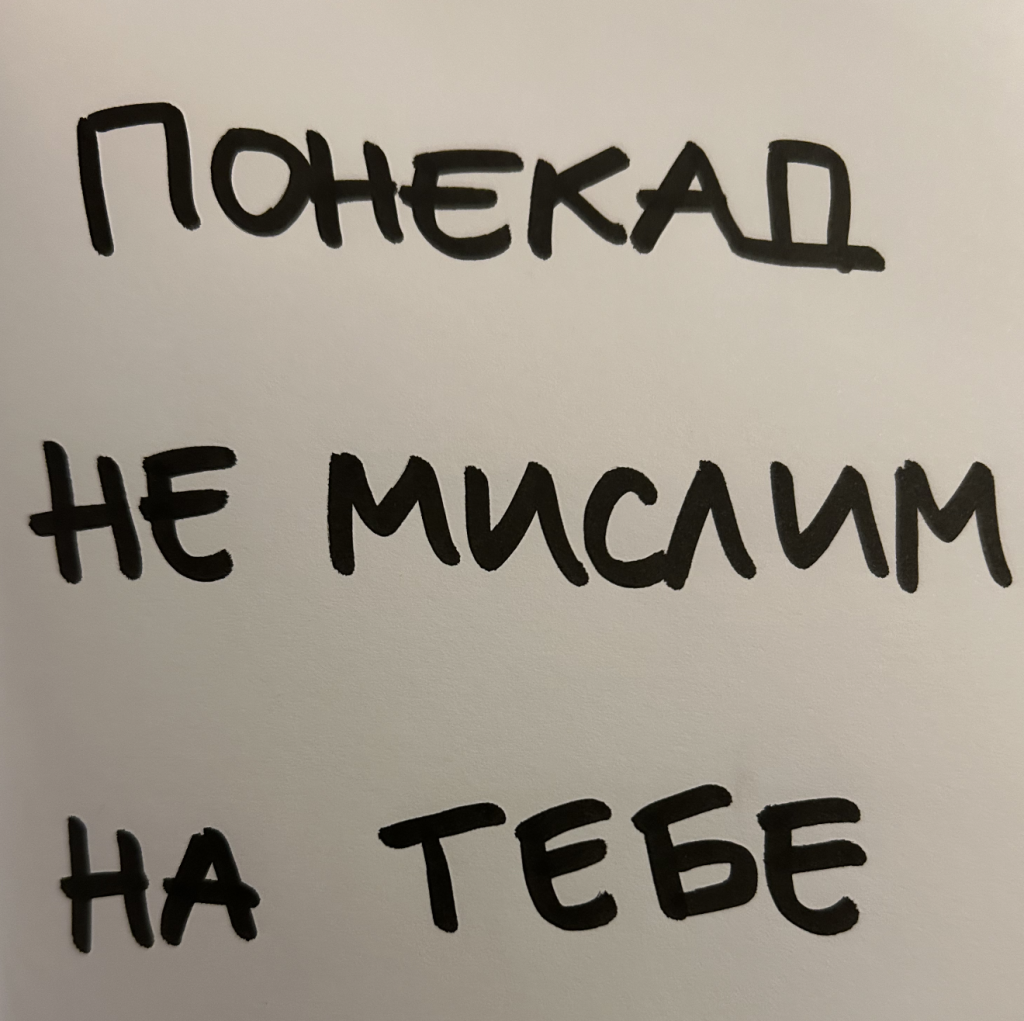 ПОНЕКАД
НЕ МИСЛИМ
НА ТЕБЕ